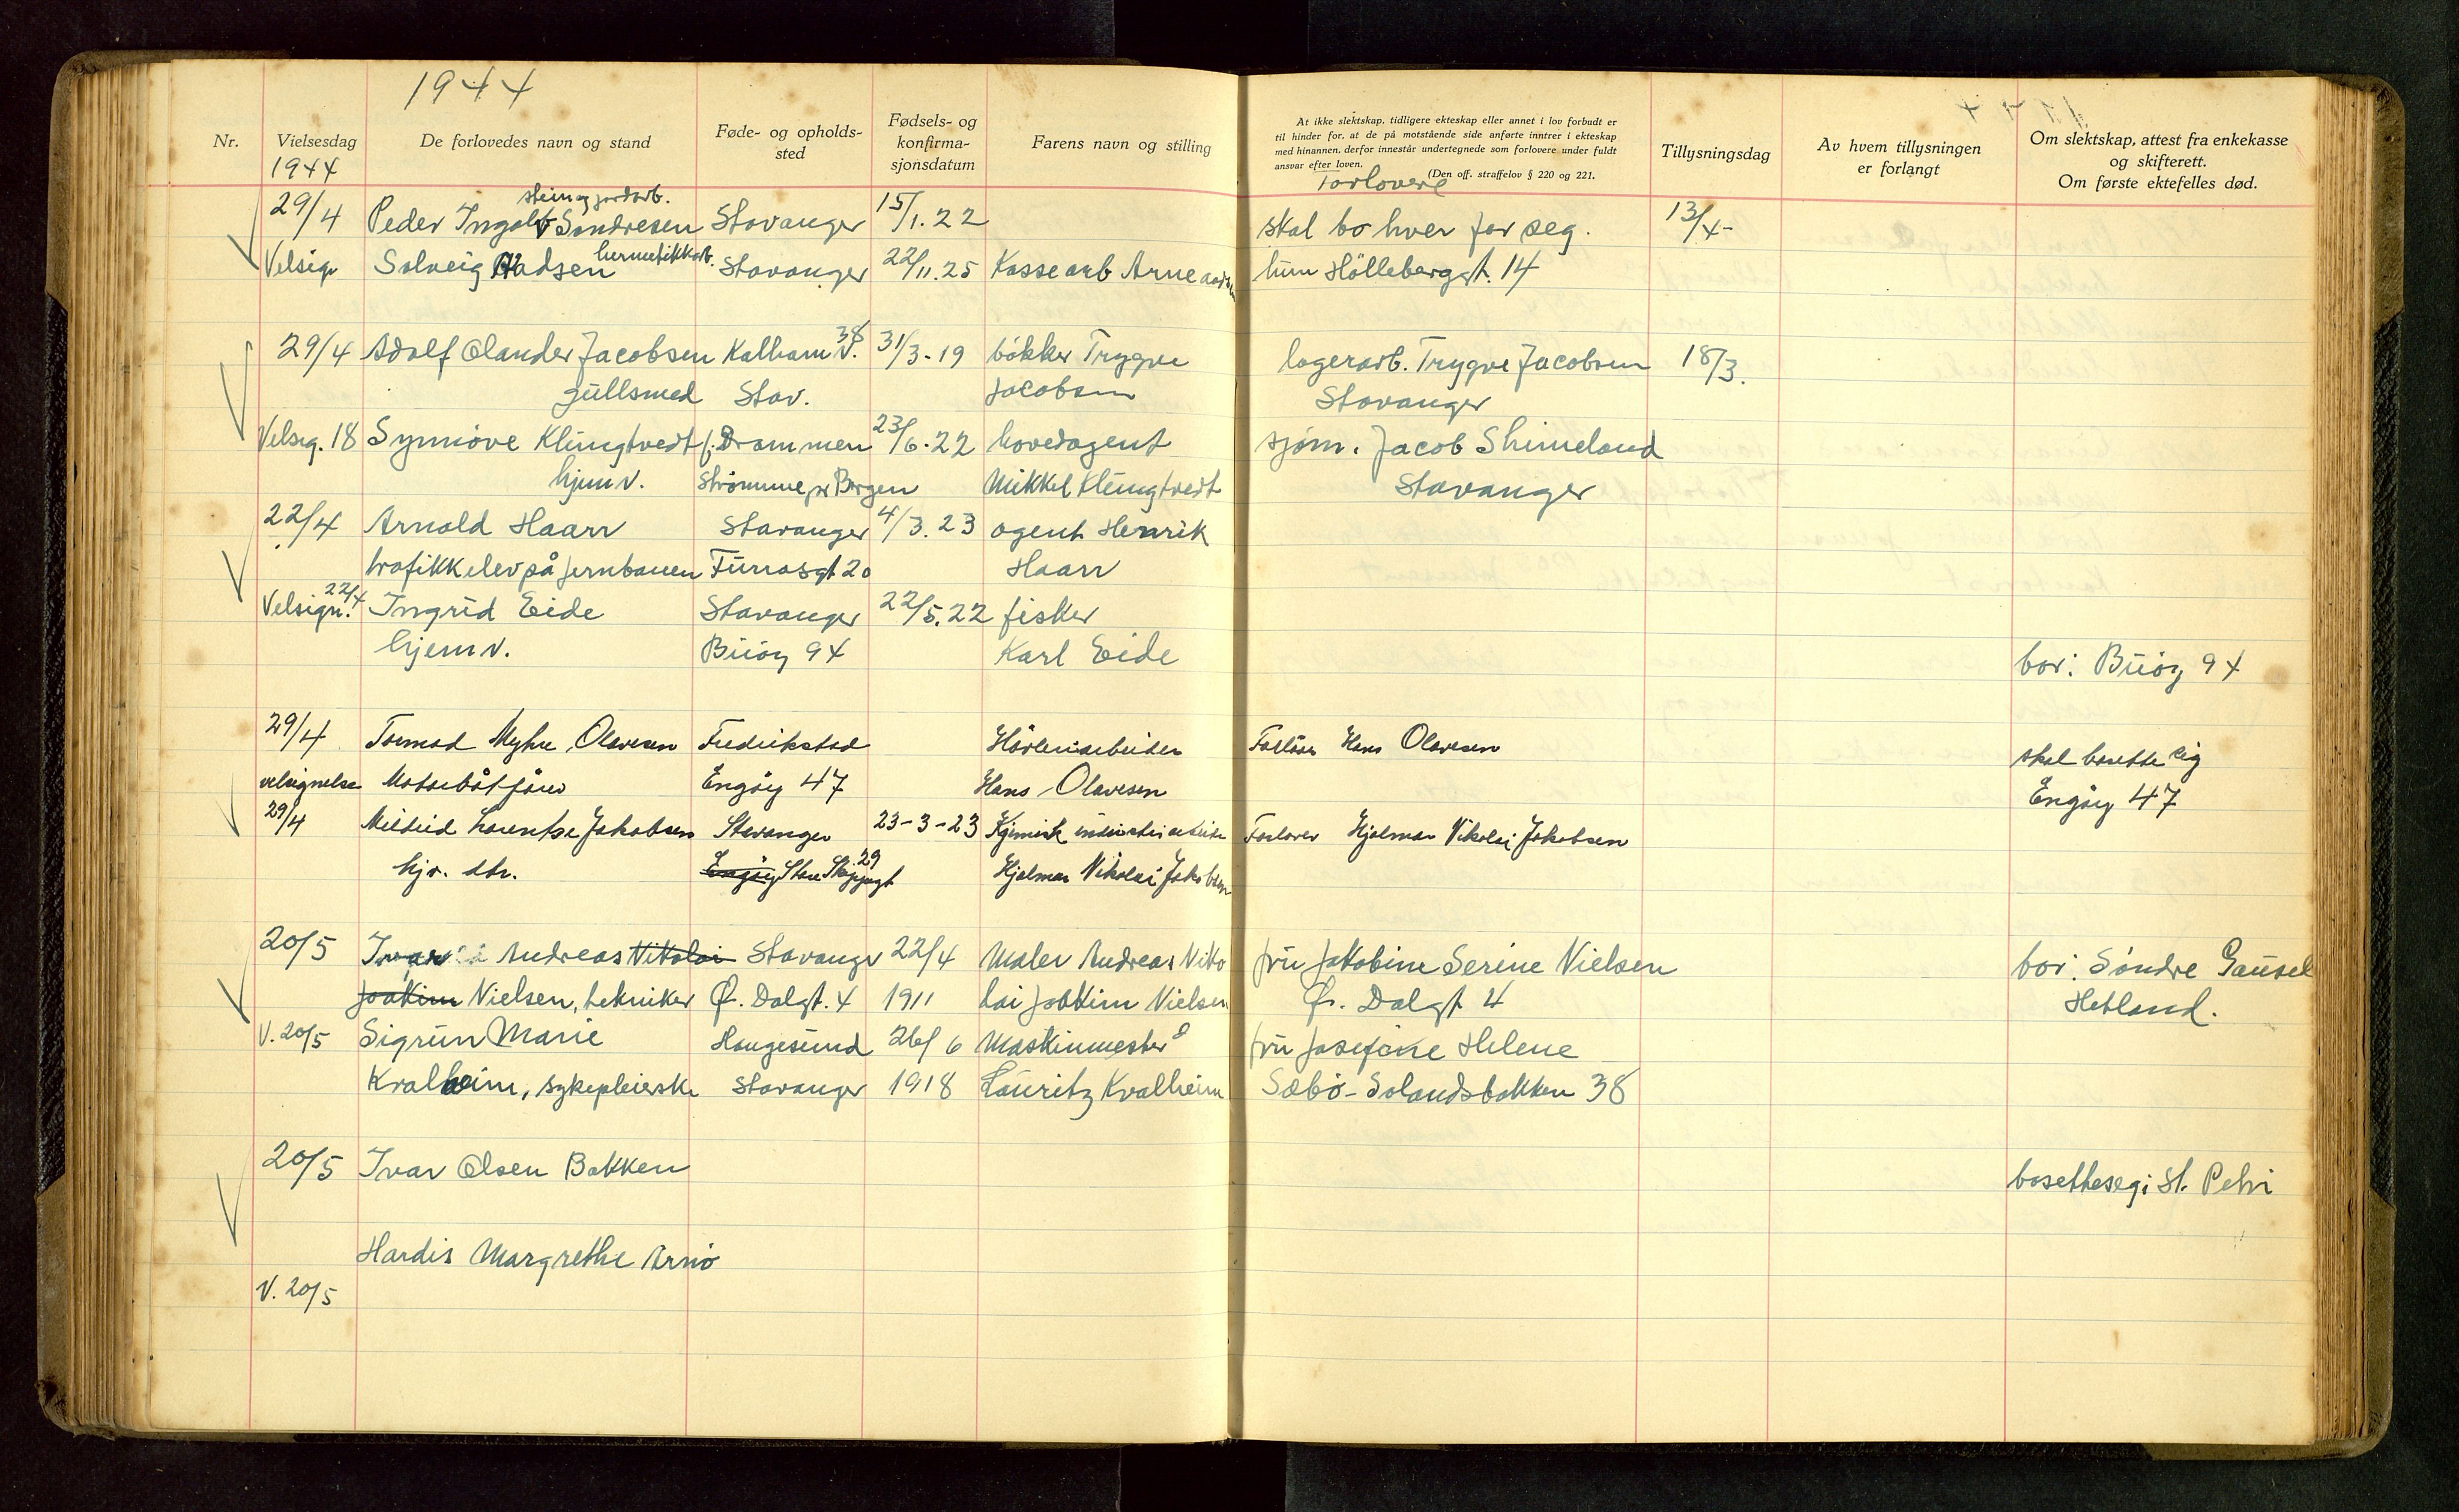 1944
Nr.
Vielsesdag
1944
De forlovedes navn og stand
Føde- og opholds-
sted
Fødsels- og
konfirma-
sjonsdatum
Farens navn og stilling
At ikke slektskap, tidligere ekteskap eller annet i lov forbudt er
til hinder for, at de på motstående side anførte inntrer i ekteskap
med hinannen, derfor innestår undertegnede som forlovere under fuldt
ansvar efter loven.
(Den off. straffelov § 220 og 221.
Forlovere
Tillysningsdag
Av hvem tillysningen
er forlangt
Om slektskap, attest fra enkekasse
og skifterett.
Om første ektefelles død.
stein og jordarb.
29/4 Peder Ingolv Sondresen Stavanger 15/1.22 skal bo hver for seg. 13/4-
hermetikkarb.
Velsign Solveig Aadsen Stavanger 22/11.25 Kassearb Arne Aadsen hun Hölleberggt. 14
29/4 Adolf Olander Jacobsen Kalhamv. 38 31/3-19 bökker Trygve lagerarb. Trygve Jacobsen 18/3.
gullsmed Stav. Jacobsen Stavanger
Velsig. 18 Synnöve Klungtvedt f. Drammen 23/6.22 hovedagent sjøm. Jacob Skimeland
hjemv. Strömme pr Bergen Mikkel Klungtvedt Stavanger
22/4 Arnold Haarr Stavanger 4/3.23 agent Henrik
trafikkelev på jernbanen Furrasgt 20 Haarr
Velsign. 22/4 Ingrid Eide Stavanger 22/5.22 fisker
hjemv. Buöy 94 Karl Eide bor: Buöy 94
29/4 Tormod Myhre Olavesen Fredrikstad Hövleriarbeider Forlöver Hans Olavesen skal bosette sig
velsignelse Motorbåtförer Engöy 47 Hans Olavesen Engöy 47
29/4 Mildrid Lorentse Jakobsen Stavanger 23-3-23 Kjemisk industriarbeider Forlover Hjalmar Nikolai Jakobsen
hjv. dtr. Engöy Store Skippergt 29 Hjalmar Nikolai Jakobsen
20/5 Ivar Andreas Nikolai Stavanger 22/4 Maler Andreas Niko fru Jakobine Serine Nielsen bor: Söndre Gausel
Joakim Nielsen, tekniker Ö. Dalgt. 4 1911 lai Joakim Nielsen Ö. Dalgt 4 Hetland.
V. 20/5 Sigrun Marie Haugesund 26/6 Maskinmester fru Josefine Helene
Kvalheim, sykepleierske Stavanger 1918 Lauritz Kvalheim Sæbö - Solandsbakken 38
20/5 Ivar Olsen Bakken bosette seg i St. Petri
Hardis Margrethe Arnö
V. 20/5